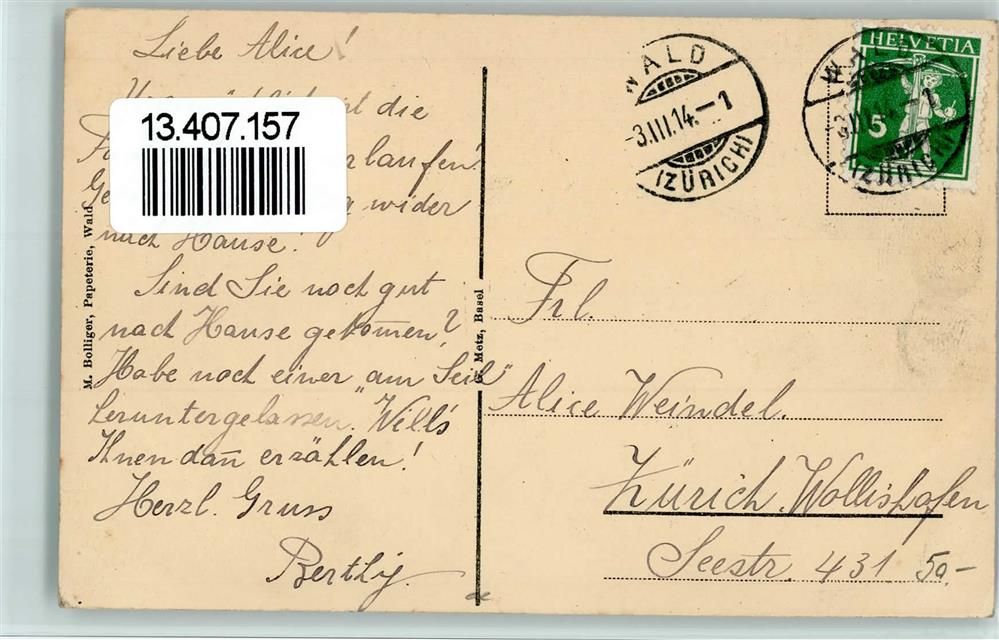 Liebe Alice!
die
laufen!
wider
nach Hause!
Sind Sie noch gut
nach Hause gekom̅en?
Habe noch einer "am Seil"
heruntergelassen. Will's
Ihnen dan̅ erzählen!
Herzl. Gruss
Berthy.
13.407.157
M. Bolliger, Papeterie, Wald
G. Metz, Basel
WALD
-3.III.14.-1
(ZÜRICH)
HELVETIA
5
WALD
-3.III.14.-1
(ZÜRICH)
Frl.
Alice Weindel.
Zürich. Wollishofen
Seestr. 431
50.-